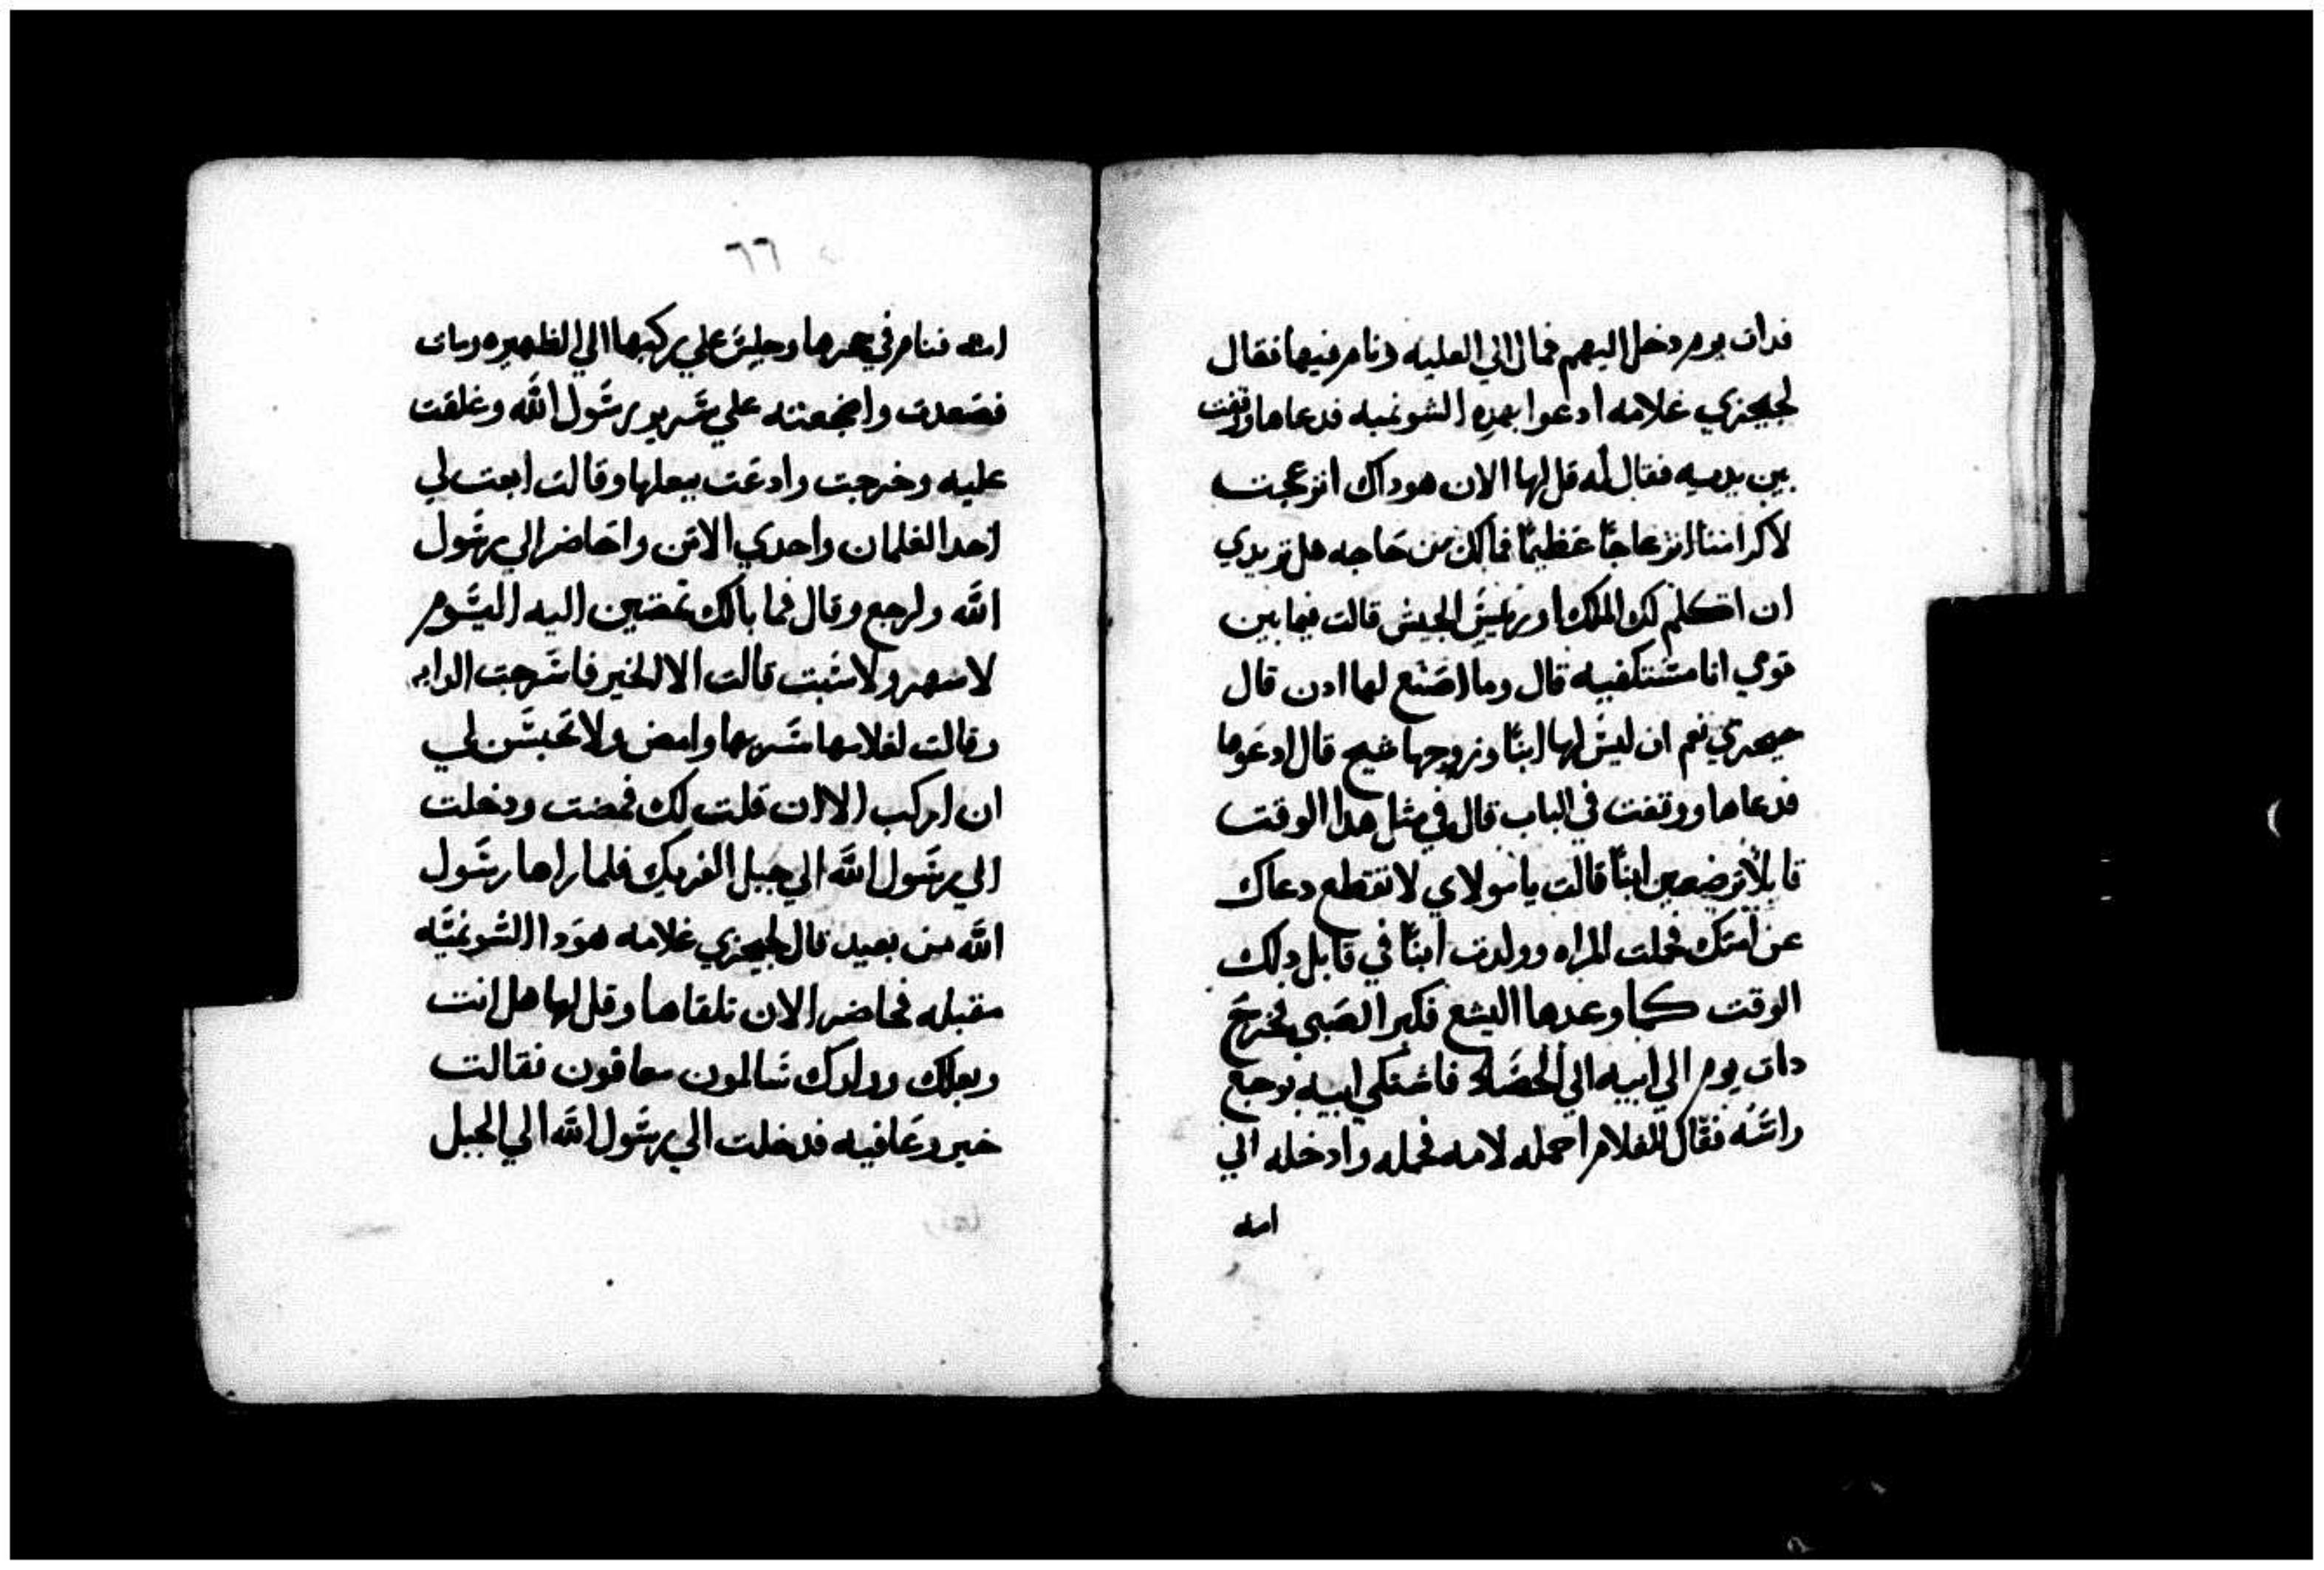 فدات يوم دخل اليهم فمال الي العليه ونام فيها فقال
لجيحزي غلامه ادعوا بهده الشونميه فدعاها وقفت
بين يديه فقال له قل لها الان هوداك انزعجت
لاكرامنا انزعاجًا عظيمًا فمالك من حاجه هل تريدي
ان اتكلم لك الملك او رييس الجيش قالت فيما بين
قومي انا مستكفيه قال وما اصنع لها ادن قال
جيحزي نعم ان ليس لها ابنًا وزوجها شيخ قال ادعوها
فدعاها ووقفت في الباب قال في مثل هدا الوقت
قابلًا ترضعين ابنًا قالت يا مولاي لا تقطع دعاك
عن امتك فحملت المراه وولدت ابنًا في قابل دلك
الوقت كما وعدها اليشع فكبر الصبي فخرج
دات يوم الي ابيه الي الحصاد فاشتكي ابيه بوجع
راسه فقال للغلام احمله لامه فحمله وادخله الي
امه
٦٦
امه فنام في حجرها وجلس علي ركبتها الي الظهيره ومات
فصعدت واضجعته علي سرير رسول الله وغلقت
عليه وخرجت وادعت ببعلها وقالت ابعت لي
احد الغلمان واحدي الاتن واحاضر الي رسول
الله وارجع وقال فما بالك تمضين اليه اليوم
لا شهر ولا سبت قالت الا لخير فاسرجت الدابه
وقالت لغلامها سر بها وامض ولا تحبسن لي
ان اركب الا ان قلت لك فمضت ودخلت
الي رسول الله الي جبل الفريك فلما راها رسول
الله من بعيد قال لجيحزي غلامه هودا الشونميه
مقبله فحاضر الان تلقاها وقل لها هل انت
وبعلك وولدك سالمون معافون فقالت
خير وعافيه فدخلت الي رسول الله الي الجبل